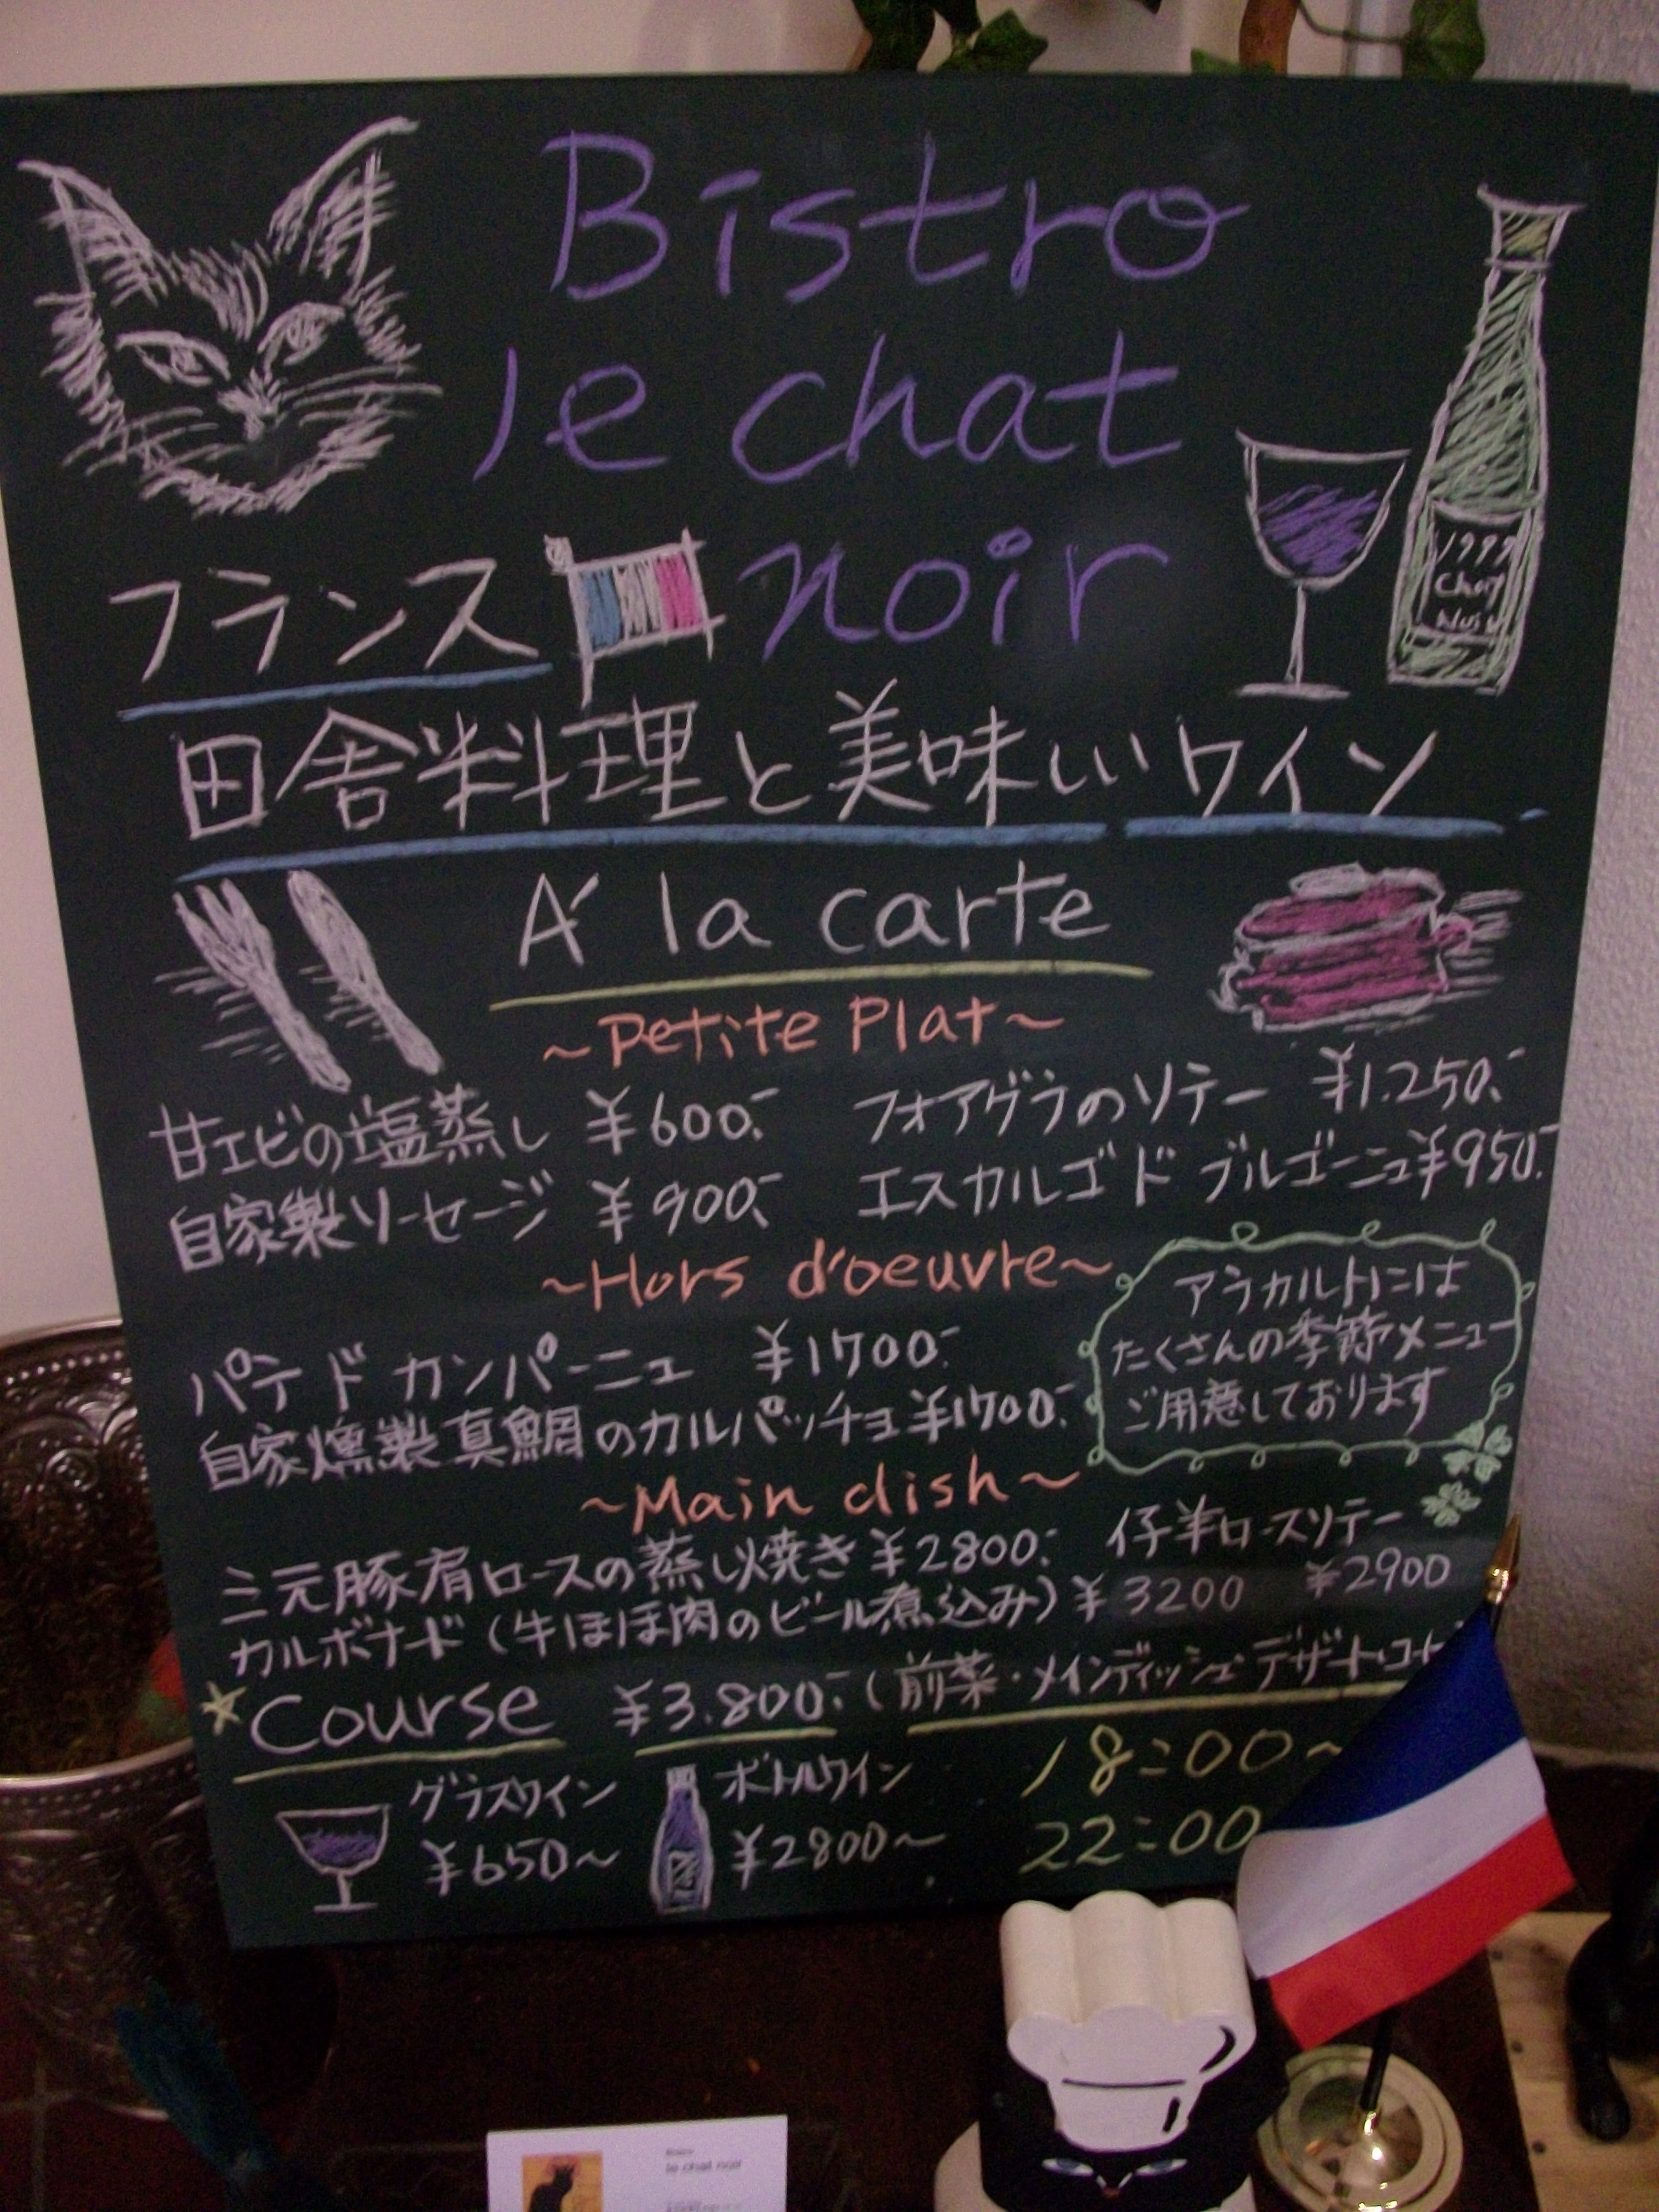 Bistro
le chat
noir
1999
Chat
Noir
フランス
田舎料理と美味しいワイン
Á la carte
~Petite Plat~
甘エビの塩蒸し ¥600.- フォアグラのソテー ¥1.250.-
自家製ソーセージ ¥900.- エスカルゴ ド ブルゴーニュ¥950.-
~Hors d'oeuvre~
パテ ド カンパーニュ ¥1700.-
自家燻製真鯛のカルパッチョ¥1700.-
アラカルトには
たくさんの季節メニュー
ご用意しております
~Main dish~
三元豚肩ロースの蒸し焼き¥2800.- 仔羊ロースソテー
¥2900
カルボナード(牛ほほ肉のビール煮込み)¥3200
Course ¥3.800.-(前菜・メインディッシュ・デザート・コー
グラスワイン
¥650~
ボトルワイン
¥2800~
18:00~
22:00
le chat noir